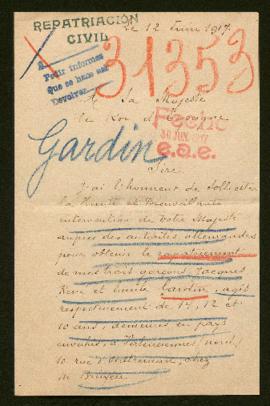 REPATRIACIÓN
CIVIL
le 12 Juin 1917.
Pedir informes
Que se hace así
Devolver
31353
A Sa Majesté
le Roi d'Espagne
Fecho
30 JUN. 1917
e.a.e.
Gardin
Sire
J'ai l'honneur de solliciter
la Haute et Bienveillante
intervention de Votre Majesté
auprès des autorités allemandes
pour obtenir le rapatriement
de mes trois garçons Jacques
René et Gardin, agés
respectivement de 14, 12 et
10 ans, demeurés en pays
10 rue chez
M.